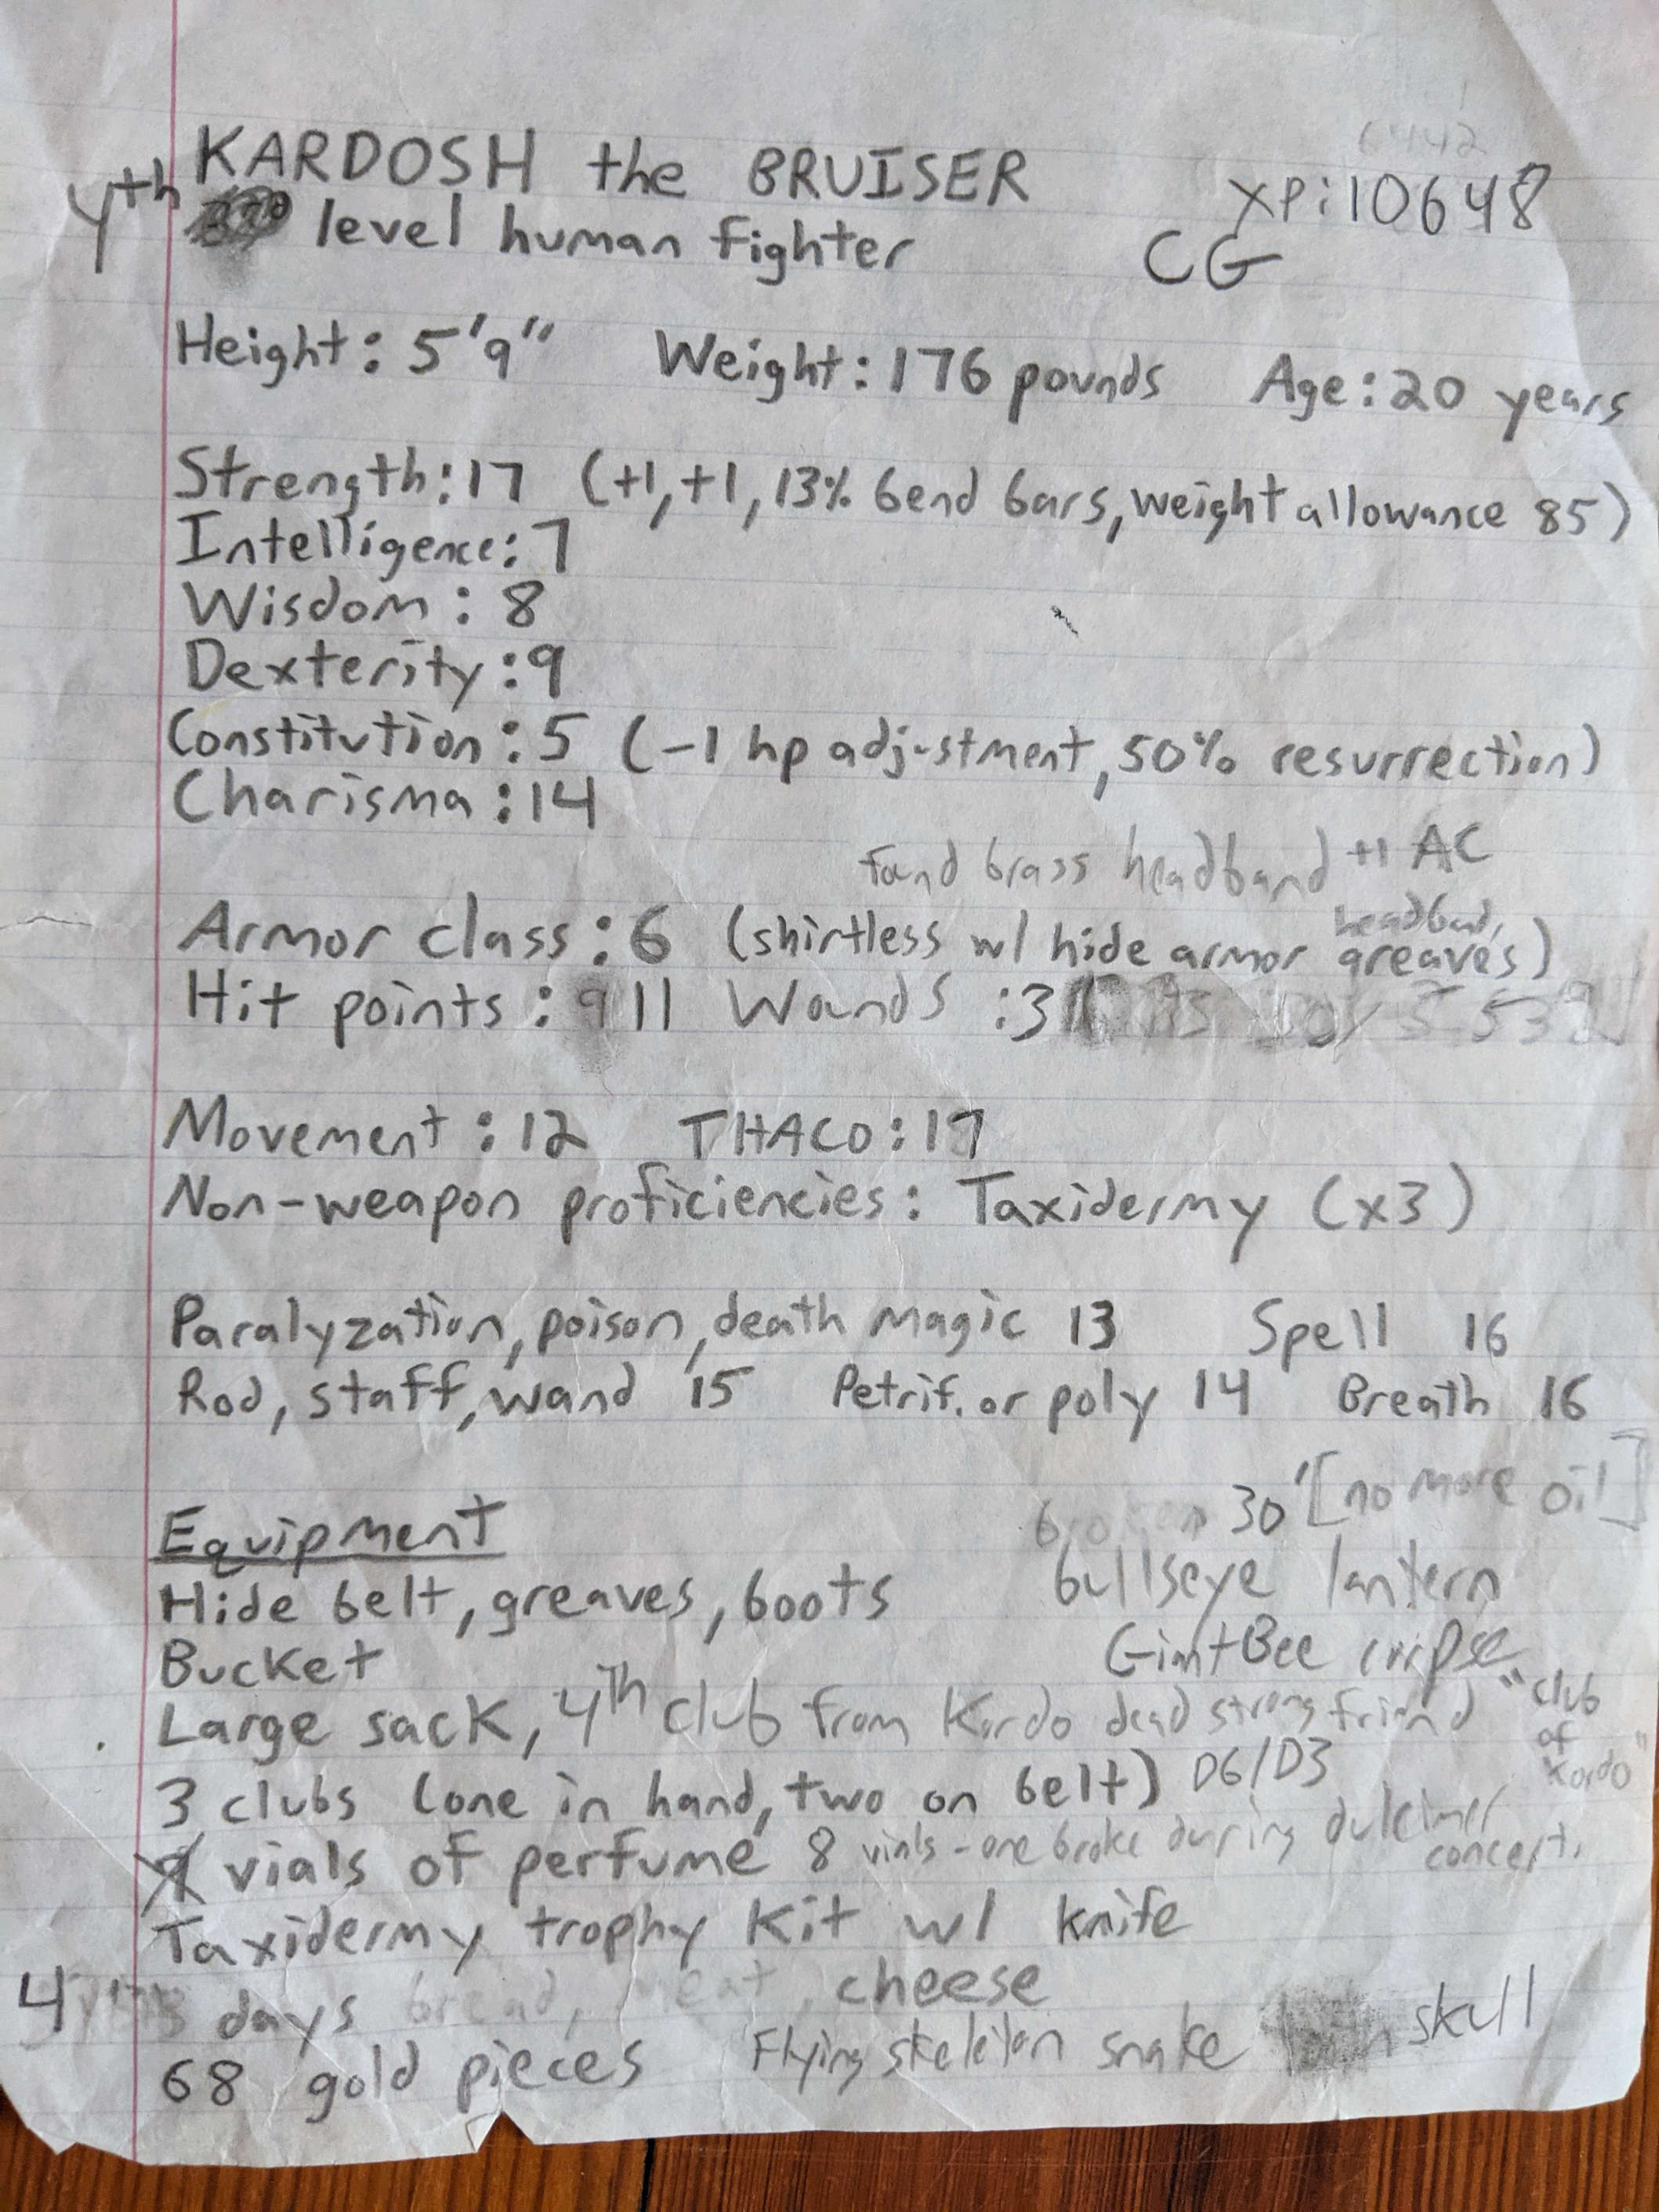 KARDOSH the BRUISER
XP:10648
4th level human fighter
CG
Height: 5'9" Weight: 176 pounds Age: 20 years
Strength: 17 (+1, +1, 13% bend bars, weight allowance 85)
Intelligence: 7
Wisdom: 8
Dexterity: 9
Constitution: 5 (-1 hp adjustment, 50% resurrection)
Charisma: 14
found brass headband +1 AC
headband,
Armor class: 6 (shirtless w/ hide armor greaves)
Hit points: 9 11 Wands: 3
Movement: 12 THACO: 17
Non-weapon proficiencies: Taxidermy (x3)
Paralyzation, poison, death magic 13 Spell 16
Rod, staff, wand 15 Petrif. or poly 14 Breath 16
broken 30' [no more oil]
Equipment
bullseye lantern
Hide belt, greaves, boots
Giant Bee corpse
Bucket
Large sack, 4th club from Kordo dead strong friend "club of Kordo"
3 clubs (one in hand, two on belt) D6/D3
9 vials of perfume 8 vials - one broke during dulcimer concert.
Taxidermy trophy kit w/ knife
4 days bread, meat, cheese
68 gold pieces Flying skeleton snake skull